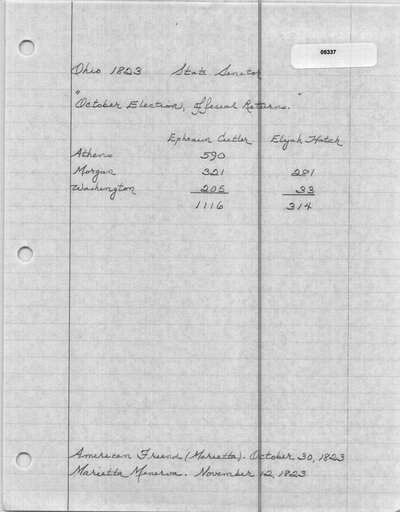 05337
Ohio 1823 State Senator
"October Election, Official Returns."
Ephraim Cutler Elijah Hatch
Athens 590
Morgan 321 281
Washington 205 33
1116 314
American Friend (Marietta). October 30, 1823
Marietta Minerva. November 12, 1823